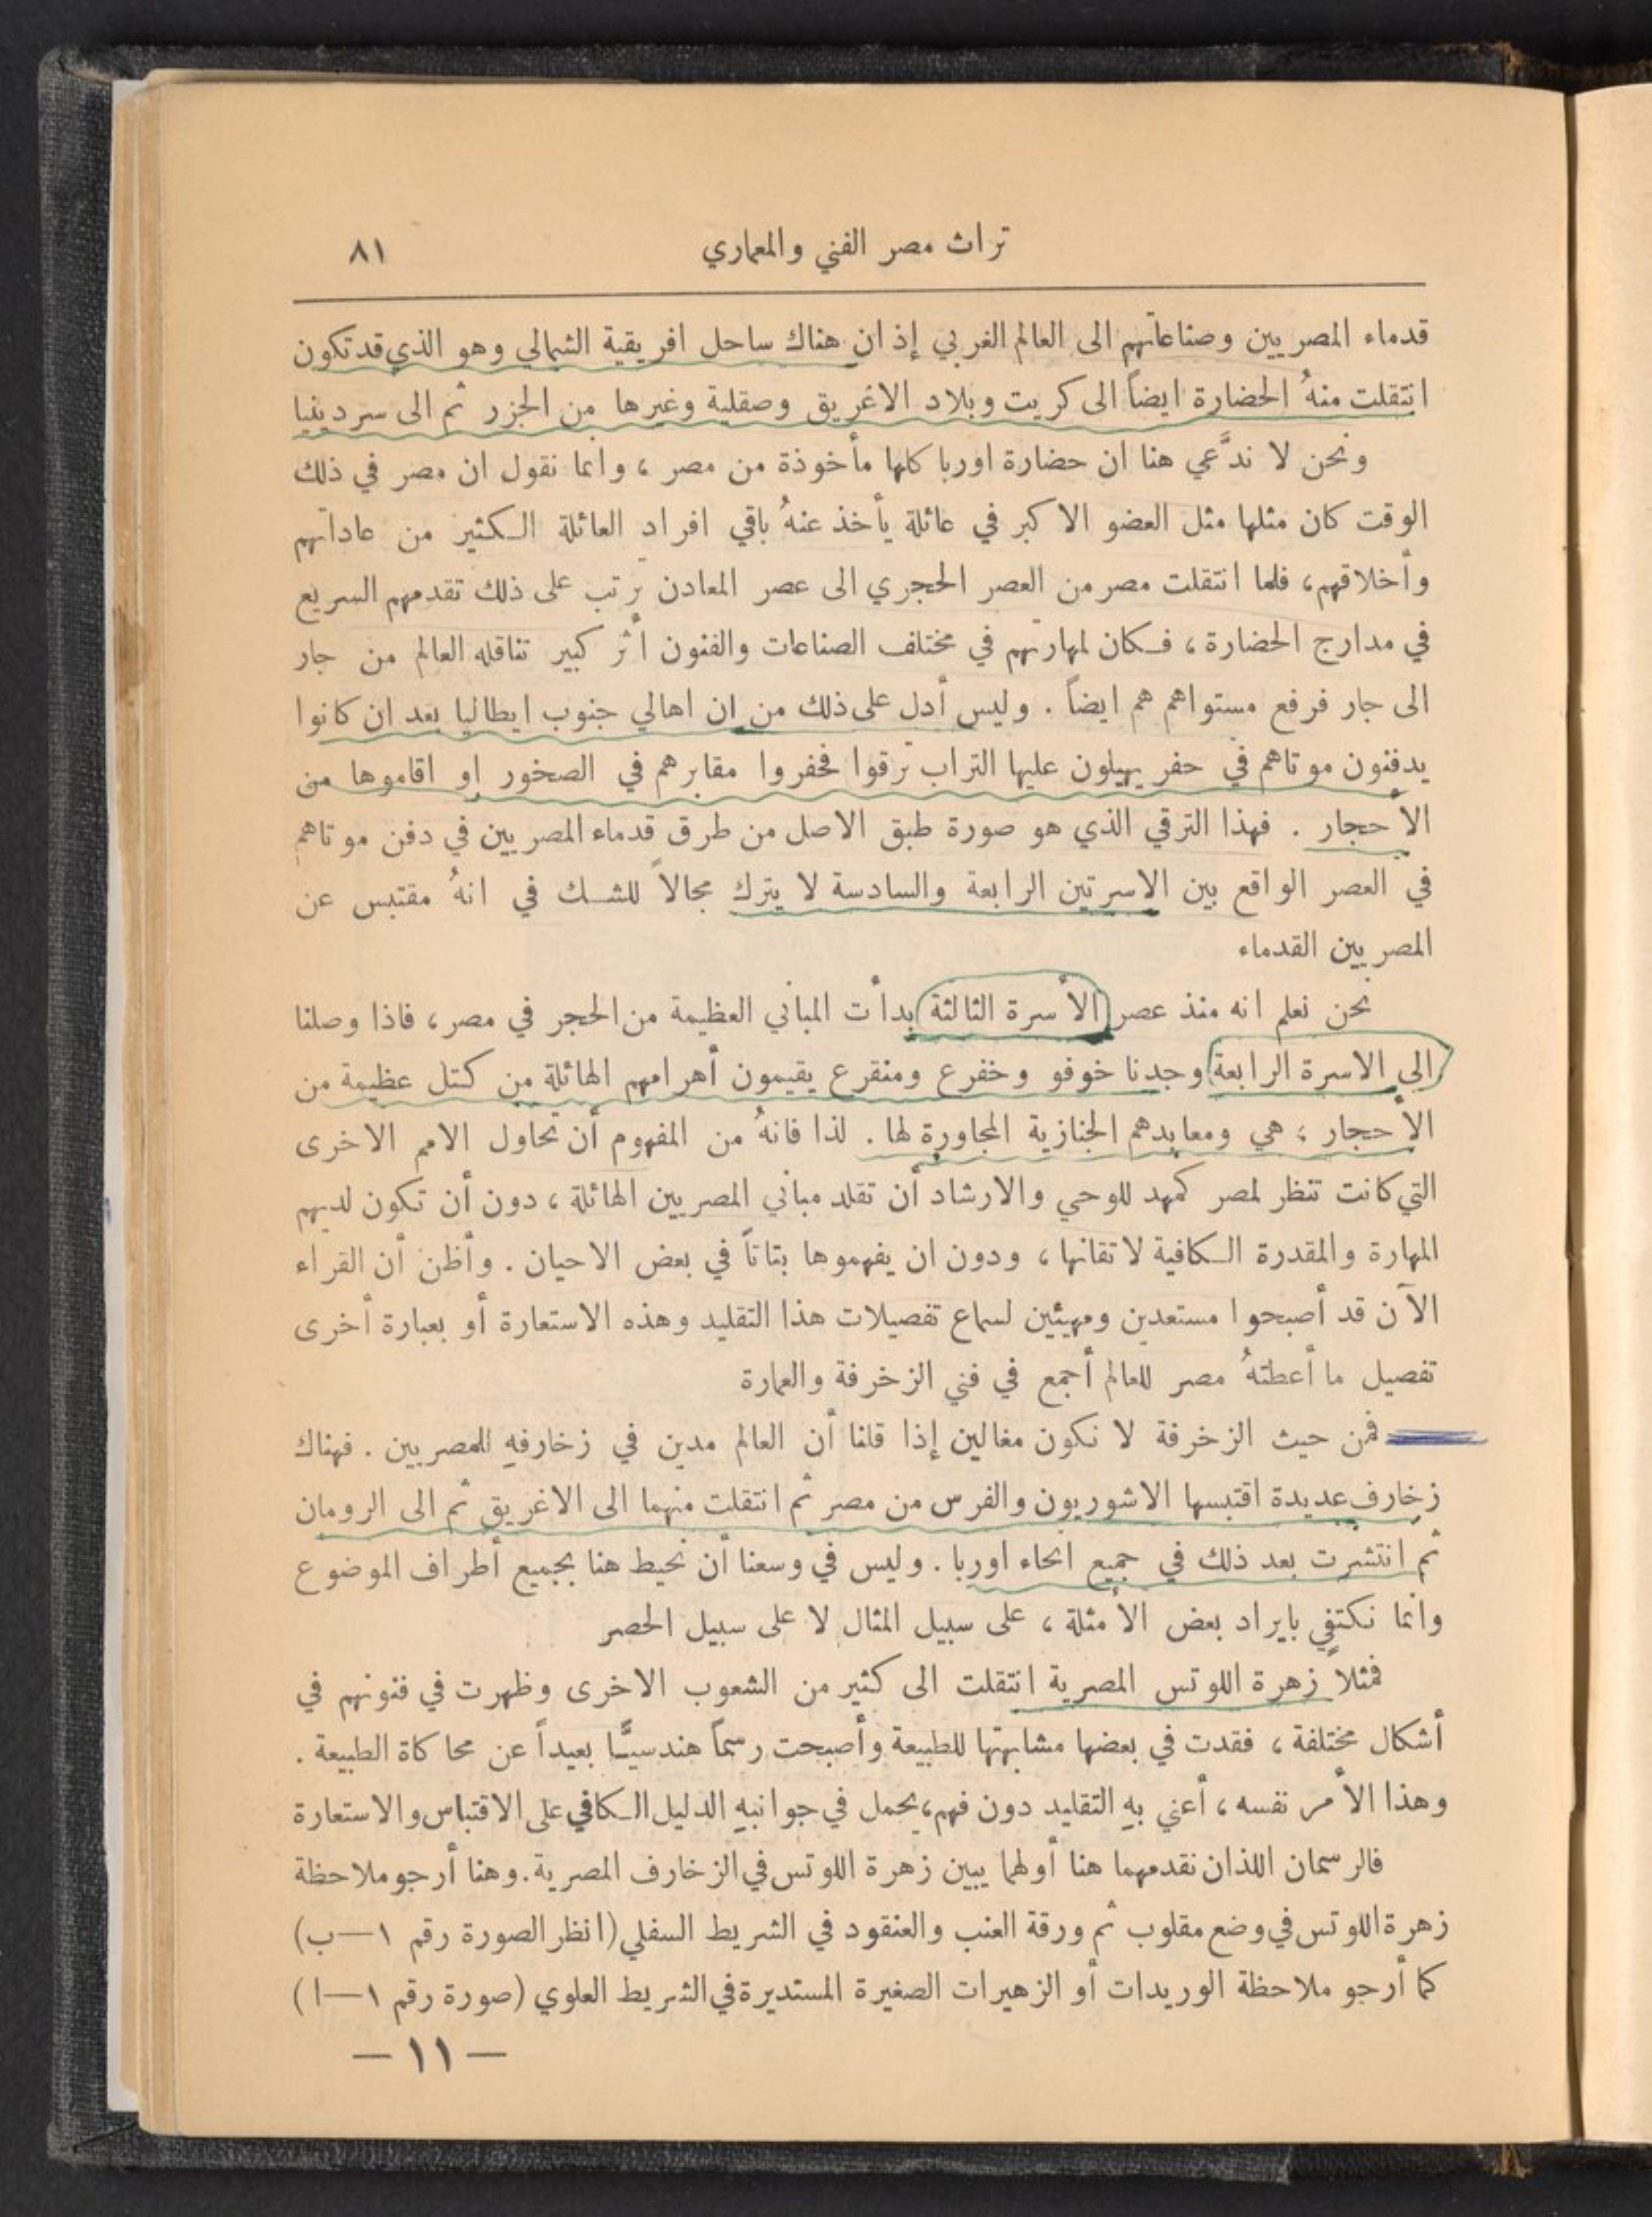 تراث مصر الفني والمعماري ٨١
قدماء المصريين وصناعاتهم الى العالم الغربي إذ ان هناك ساحل افريقية الشمالي وهو الذي قد تكون
انتقلت منهُ الحضارة ايضاً الى كريت وبلاد الاغريق وصقلية وغيرها من الجزر ثم الى سردينيا
ونحن لا ندَّعي هنا ان حضارة اوربا كلها مأخوذة من مصر ، وانما نقول ان مصر في ذلك
الوقت كان مثلها مثل العضو الاكبر في عائلة يأخذ عنهُ باقي افراد العائلة الكثير من عاداتهم
وأخلاقهم، فلما انتقلت مصر من العصر الحجري الى عصر المعادن ترتب على ذلك تقدمهم السريع
في مدارج الحضارة ، فكان لمهارتهم في مختلف الصناعات والفنون أثر كبير تناقله العالم من جار
الى جار فرفع مستواهم هم ايضاً . وليس أدل على ذلك من ان اهالي جنوب ايطاليا بعد ان كانوا
يدفنون موتاهم في حفر يهيلون عليها التراب ترقوا فحفروا مقابرهم في الصخور او اقاموها من
الأحجار . فهذا الترقي الذي هو صورة طبق الاصل من طرق قدماء المصريين في دفن موتاهم
في العصر الواقع بين الاسرتين الرابعة والسادسة لا يترك مجالاً للشك في انهُ مقتبس عن
المصريين القدماء
نحن نعلم انه منذ عصر الأسرة الثالثة بدأت المباني العظيمة من الحجر في مصر ، فاذا وصلنا
الى الاسرة الرابعة وجدنا خوفو وخفرع ومنقرع يقيمون أهرامهم الهائلة من كتل عظيمة من
الأحجار ؛ هي ومعابدهم الجنازية المجاورة لها . لذا فانهُ من المفهوم أن تحاول الامم الاخرى
التي كانت تنظر لمصر كمهد للوحي والارشاد أن تقلد مباني المصريين الهائلة ، دون أن تكون لديهم
المهارة والمقدرة الكافية لاتقانها ، ودون ان يفهموها بتاتاً في بعض الاحيان . وأظن أن القراء
الآن قد أصبحوا مستعدين ومهيئين لسماع تفصيلات هذا التقليد وهذه الاستعارة أو بعبارة أخرى
تفصيل ما أعطتهُ مصر للعالم أجمع في فني الزخرفة والعمارة
فمن حيث الزخرفة لا نكون مغالين إذا قلنا أن العالم مدين في زخارفهِ للمصريين . فهناك
زخارف عديدة اقتبسها الاشوريون والفرس من مصر ثم انتقلت منهما الى الاغريق ثم الى الرومان
ثم انتشرت بعد ذلك في جميع انحاء اوربا . وليس في وسعنا أن نحيط هنا بجميع أطراف الموضوع
وانما نكتفي بايراد بعض الأمثلة ، على سبيل المثال لا على سبيل الحصر
فمثلاً زهرة اللوتس المصرية انتقلت الى كثير من الشعوب الاخرى وظهرت في فنونهم في
أشكال مختلفة ، فقدت في بعضها مشابهتها للطبيعة وأصبحت رسماً هندسيًّا بعيداً عن محاكاة الطبيعة .
وهذا الأمر نفسه ، أعني بهِ التقليد دون فهم، يحمل في جوانبهِ الدليل الكافي على الاقتباس والاستعارة
فالرسمان اللذان نقدمهما هنا أولهما يبين زهرة اللوتس في الزخارف المصرية . وهنا أرجو ملاحظة
زهرة اللوتس في وضع مقلوب ثم ورقة العنب والعنقود في الشريط السفلي (انظر الصورة رقم ١—ب)
كما أرجو ملاحظة الوريدات أو الزهيرات الصغيرة المستديرة في الشريط العلوي (صورة رقم ١—ا)
— ١١ —